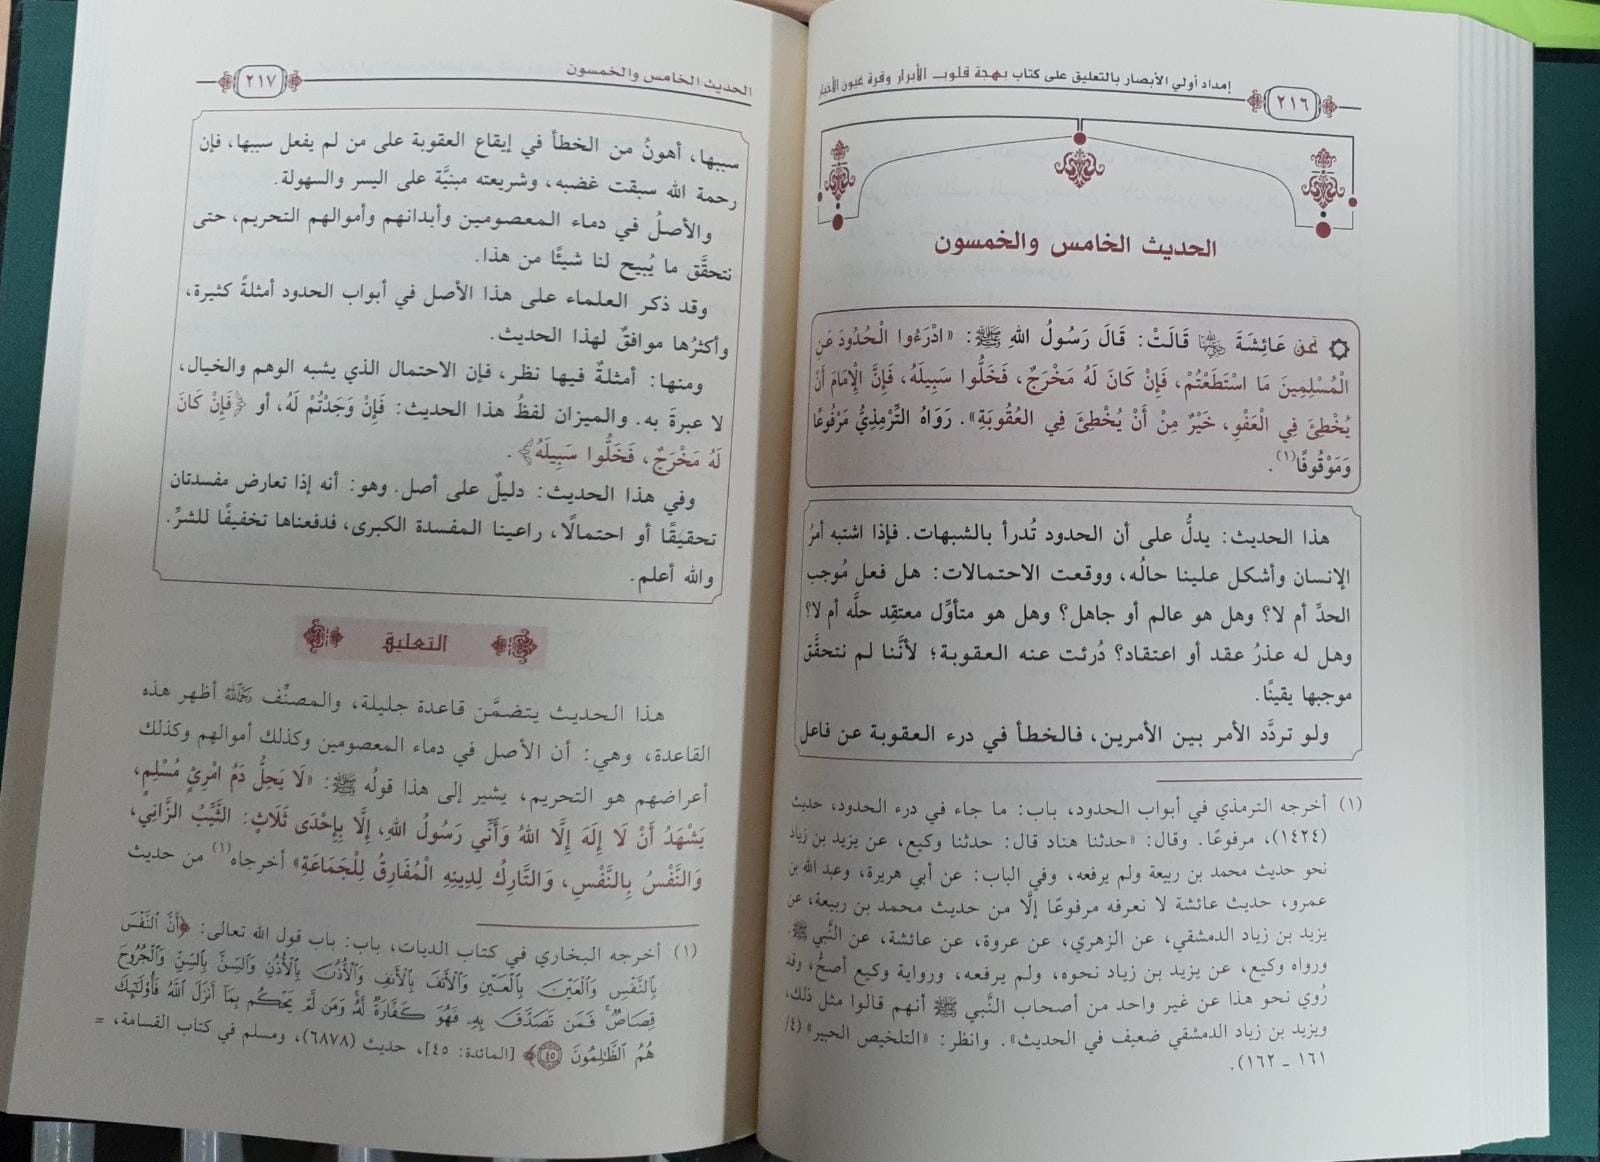 إمداد أولي الأبصار بالتعليق على كتاب بهجة قلوب الأبرار وقرة عيون الأخيار
٢١٦
الحديث الخامس والخمسون
عَن عَائِشَةَ ﵂ قَالَتْ: قَالَ رَسُولُ اللهِ ﷺ: «ادْرَءُوا الْحُدُودَ عَنِ
الْمُسْلِمِينَ مَا اسْتَطَعْتُمْ، فَإِنْ كَانَ لَهُ مَخْرَجٌ، فَخَلُّوا سَبِيلَهُ، فَإِنَّ الإِمَامَ أَنْ
يُخْطِئَ فِي الْعَفْوِ، خَيْرٌ مِنْ أَنْ يُخْطِئَ فِي العُقُوبَةِ». رَوَاهُ التِّرْمِذِيُّ مَرْفُوعًا
وَمَوْقُوفًا(١).
هذا الحديث: يدلُّ على أن الحدود تُدرأ بالشبهات. فإذا اشتبه أمرُ
الإنسان وأشكل علينا حالُه، ووقعت الاحتمالات: هل فعل مُوجب
الحدِّ أم لا؟ وهل هو عالم أو جاهل؟ وهل هو متأوِّل معتقِد حلَّه أم لا؟
وهل له عذرُ عقد أو اعتقاد؟ دُرئت عنه العقوبة؛ لأنَّنا لم نتحقَّق
موجبها يقينًا.
ولو تردَّد الأمر بين الأمرين، فالخطأ في درء العقوبة عن فاعل
(١) أخرجه الترمذي في أبواب الحدود، باب: ما جاء في درء الحدود، حديث
(١٤٢٤)، مرفوعًا. وقال: «حدثنا هناد قال: حدثنا وكيع، عن يزيد بن زياد
نحو حديث محمد بن ربيعة ولم يرفعه، وفي الباب: عن أبي هريرة، وعبد الله بن
عمرو، حديث عائشة لا نعرفه مرفوعًا إلَّا من حديث محمد بن ربيعة، عن
يزيد بن زياد الدمشقي، عن الزهري، عن عروة، عن عائشة، عن النَّبي ﷺ.
ورواه وكيع، عن يزيد بن زياد نحوه، ولم يرفعه، ورواية وكيع أصحُّ، وقد
رُوي نحو هذا عن غير واحد من أصحاب النَّبي ﷺ أنهم قالوا مثل ذلك،
ويزيد بن زياد الدمشقي ضعيف في الحديث». وانظر: «التلخيص الحبير» (٤/
١٦١ ـ ١٦٢).
الحديث الخامس والخمسون
٢١٧
سببها، أهونُ من الخطأ في إيقاع العقوبة على من لم يفعل سببها، فإن
رحمة الله سبقت غضبه، وشريعته مبنيَّة على اليسر والسهولة.
والأصلُ في دماء المعصومين وأبدانهم وأموالهم التحريم، حتى
نتحقَّق ما يُبيح لنا شيئًا من هذا.
وقد ذكر العلماء على هذا الأصل في أبواب الحدود أمثلةً كثيرة،
وأكثرُها موافقٌ لهذا الحديث.
ومنها: أمثلةٌ فيها نظر، فإن الاحتمال الذي يشبه الوهم والخيال،
لا عبرةَ به. والميزان لفظُ هذا الحديث: فَإِنْ وَجَدْتُمْ لَهُ، أو ﴿فَإِنْ كَانَ
لَهُ مَخْرَجٌ، فَخَلُّوا سَبِيلَهُ﴾.
وفي هذا الحديث: دليلٌ على أصل. وهو: أنه إذا تعارض مفسدتان
تحقيقًا أو احتمالًا، راعينا المفسدة الكبرى، فدفعناها تخفيفًا للشرِّ.
والله أعلم.
التعليق
هذا الحديث يتضمَّن قاعدة جليلة، والمصنِّف ﵀ أظهر هذه
القاعدة، وهي: أن الأصل في دماء المعصومين وكذلك أموالهم وكذلك
أعراضهم هو التحريم، يشير إلى هذا قولُه ﷺ: «لَا يَحِلُّ دَمُ امْرِئٍ مُسْلِمٍ،
يَشْهَدُ أَنْ لَا إِلَهَ إِلَّا اللهُ وَأَنِّي رَسُولُ اللهِ، إِلَّا بِإِحْدَى ثَلَاثٍ: الثَّيِّبُ الزَّانِي،
وَالنَّفْسُ بِالنَّفْسِ، وَالتَّارِكُ لِدِينِهِ الْمُفَارِقُ لِلْجَمَاعَةِ» أخرجاه(١) من حديث
(١) أخرجه البخاري في كتاب الديات، باب: باب قول الله تعالى: ﴿أَنَّ النَّفْسَ
بِالنَّفْسِ وَالْعَيْنَ بِالْعَيْنِ وَالْأَنفَ بِالْأَنفِ وَالْأُذُنَ بِالْأُذُنِ وَالسِّنَّ بِالسِّنِّ وَالْجُرُوحَ
قِصَاصٌ فَمَن تَصَدَّقَ بِهِ فَهُوَ كَفَّارَةٌ لَّهُ وَمَن لَّمْ يَحْكُم بِمَا أَنزَلَ اللَّهُ فَأُولَٰئِكَ
هُمُ الظَّالِمُونَ ٤٥﴾ [المائدة: ٤٥]، حديث (٦٨٧٨)، ومسلم في كتاب القسامة، =